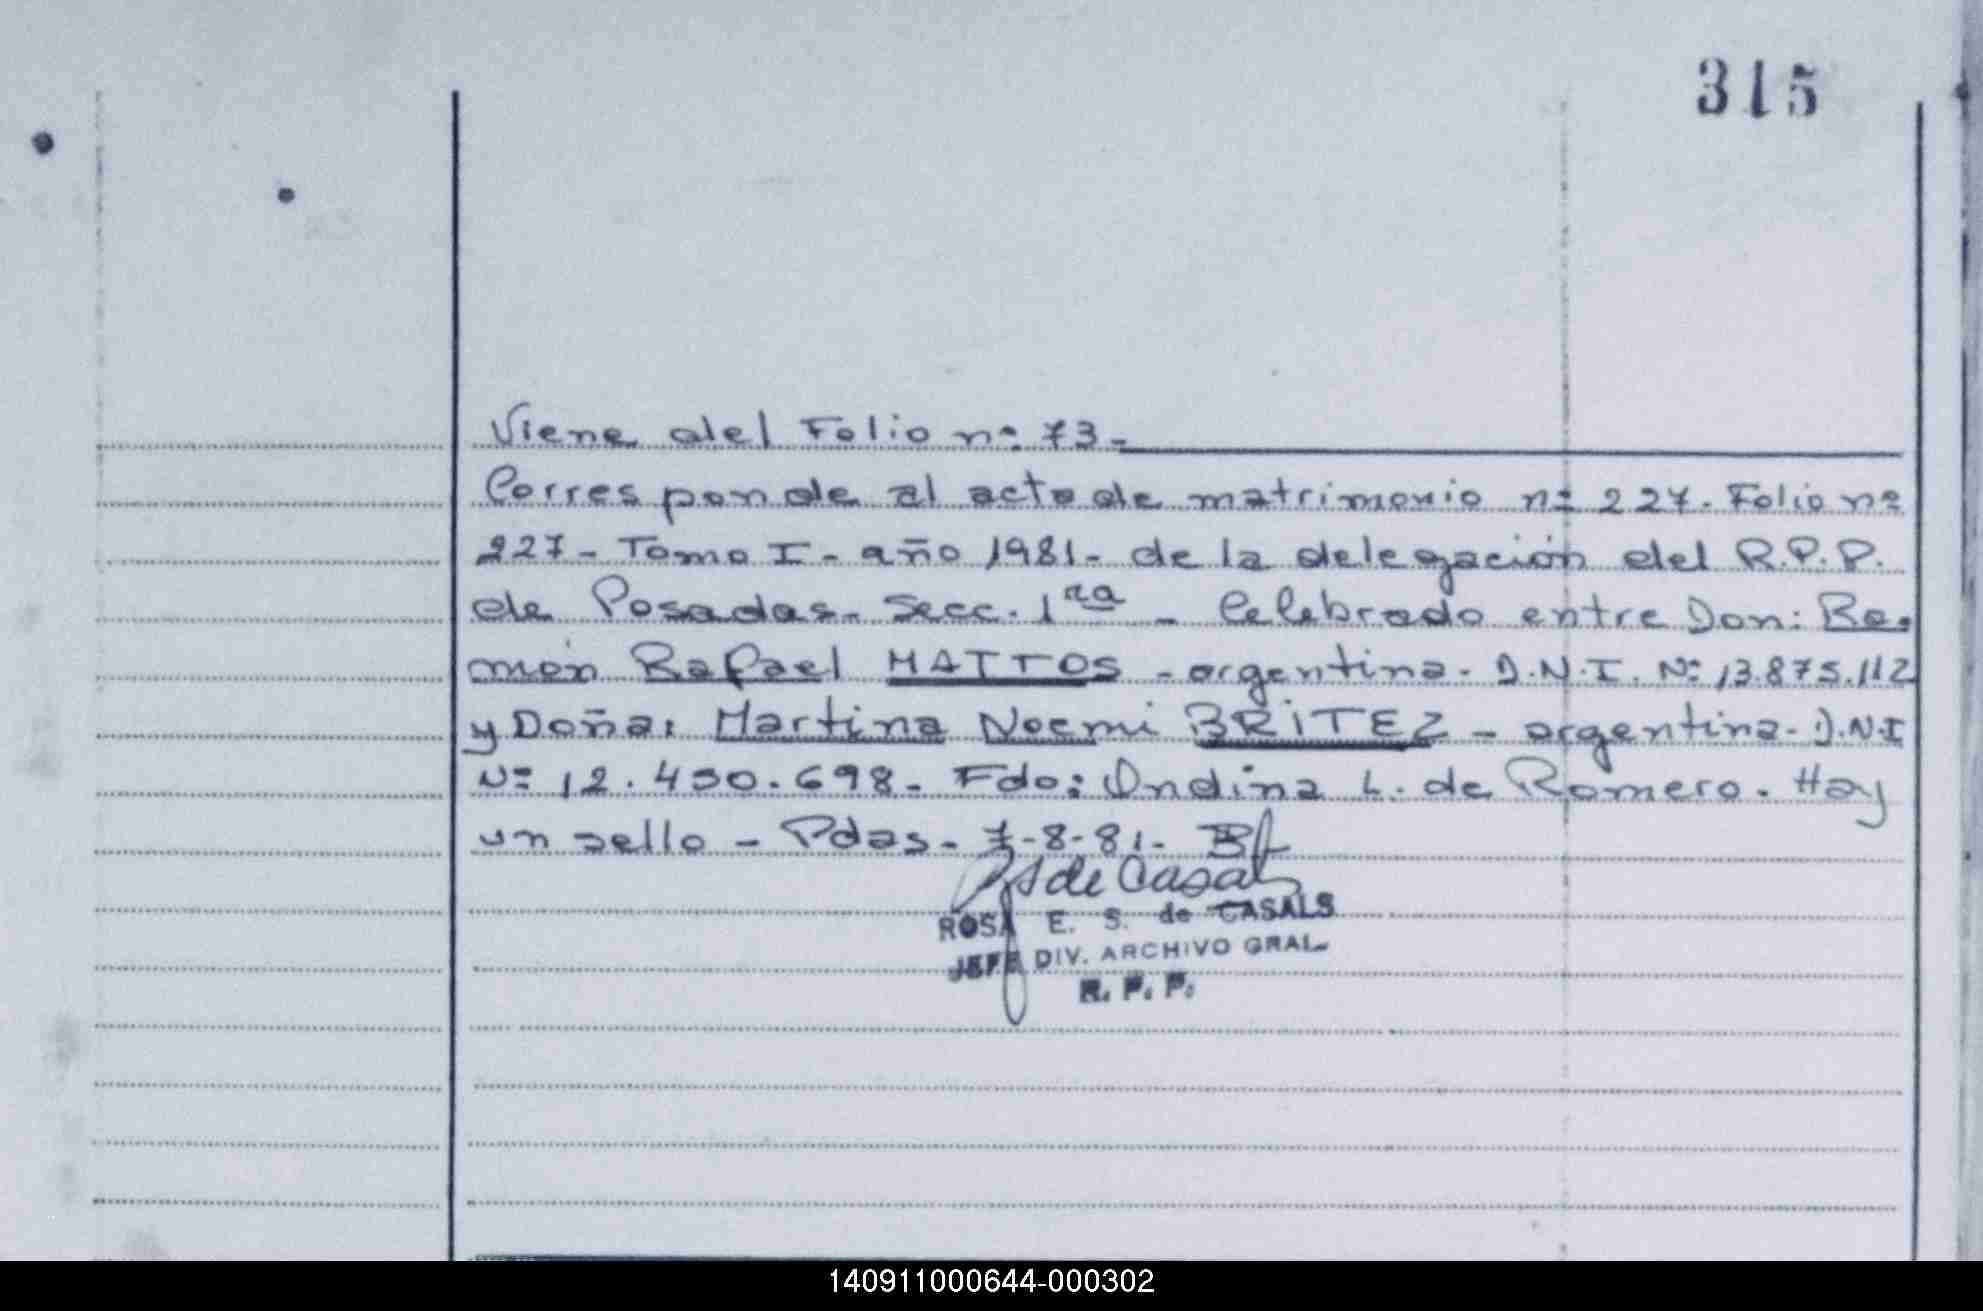 315
Viene del Folio nº 73-
Corresponde al acta de matrimonio nº 227. Folio nº
227- Tomo I- año 1981- de la delegación del R.P.P.
de Posadas- Secc. 1ra - Celebrado entre Don: Ra-
món Rafael MATTOS - argentino- D.N.I. Nº 13.875.112
y Doña: Martina Noemi BRITEZ - argentina- D.N.I
Nº 12.450.698- Fdo: Ondina L. de Romero. Hay
un sello - Pdas- 7-8-81-
de Casals
ROSA E. S. de CASALS
JEFE DIV. ARCHIVO GRAL
R. P. P.
140911000644-000302